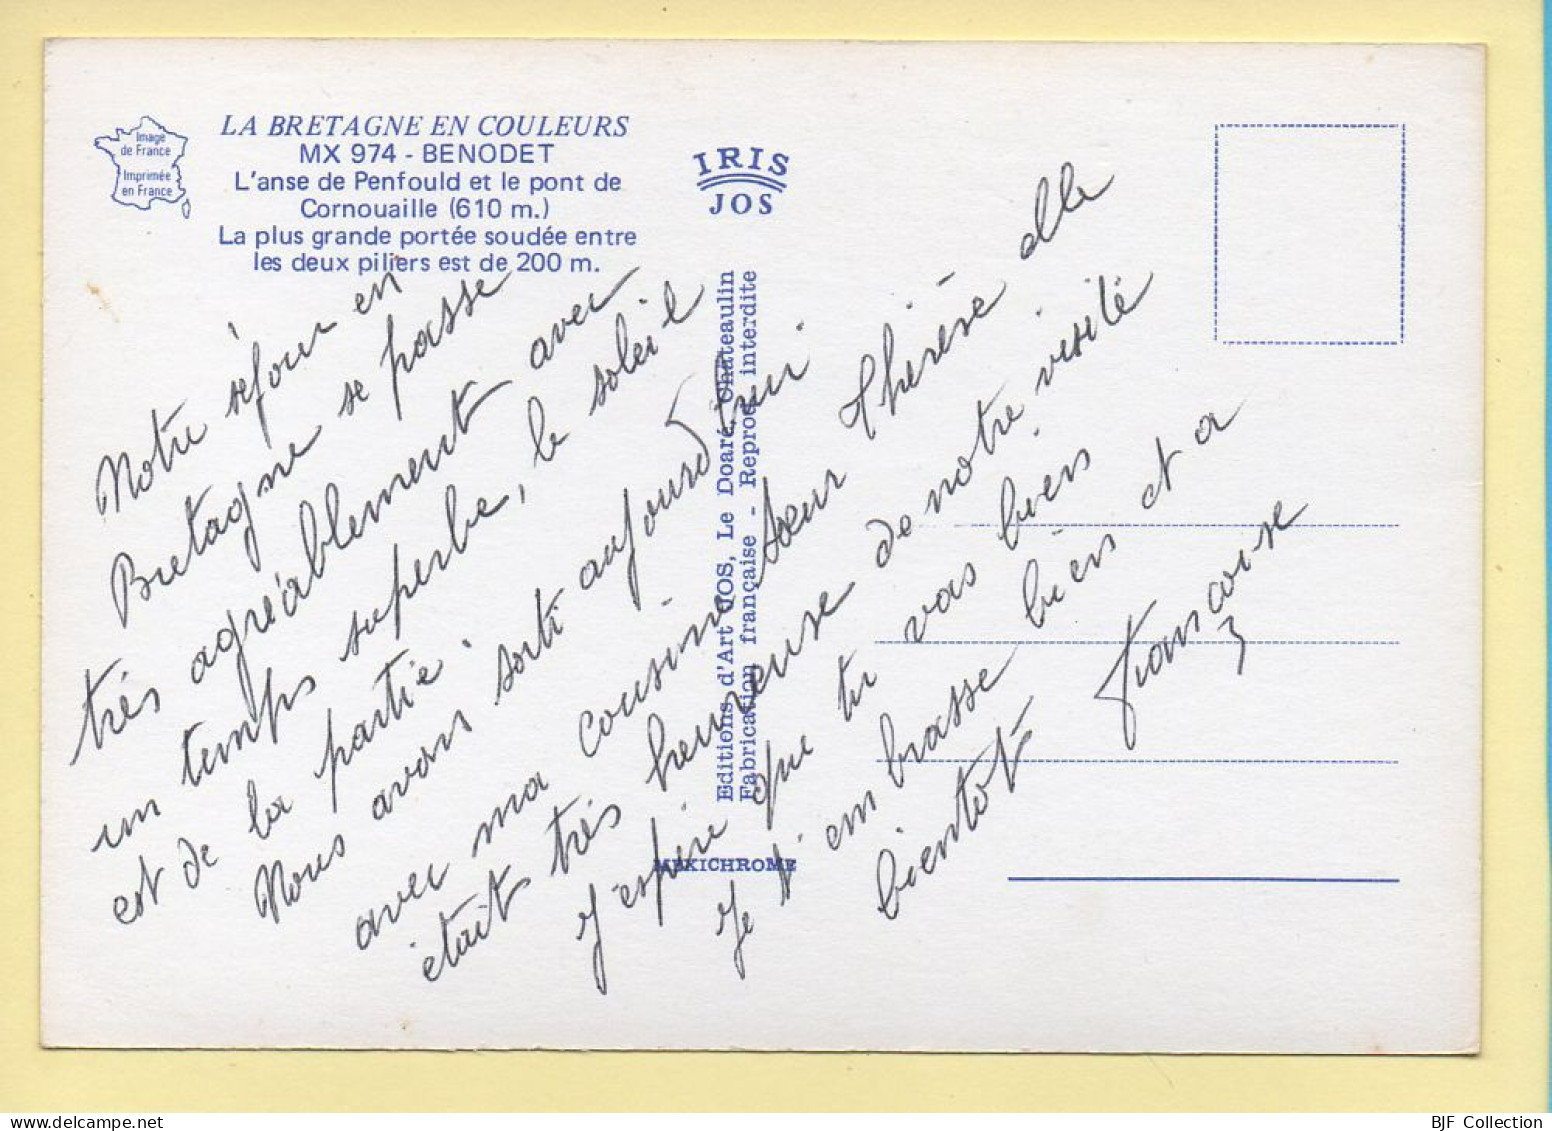 Image
de France
Imprimée
en France
LA BRETAGNE EN COULEURS
MX 974 - BENODET
L'anse de Penfould et le pont de
Cornouaille (610 m.)
La plus grande portée soudée entre
les deux piliers est de 200 m.
IRIS
JOS
Editions d'Art JOS, Le Doaré, Châteaulin
Fabrication française - Reprod. interdite
MEXICHROME
Notre séjour en
Bretagne se passe
très agréablement avec
un temps superbe, le soleil
est de la partie.
Nous avons sorti aujourd'hui
avec ma cousine soeur Thérèse elle
était très heureuse de notre visite
J'espère que tu vas bien
Je t'embrasse bien et a
bientôt Françoise
BJF Collection